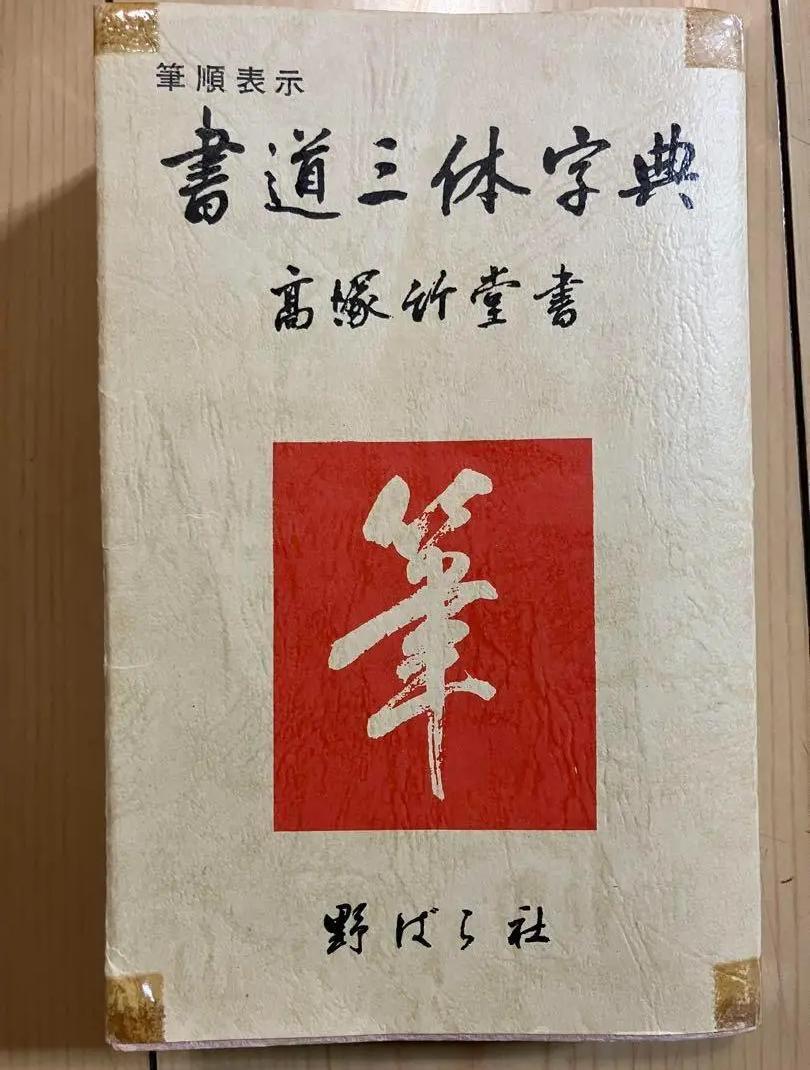 筆順表示
書道三体字典
高塚竹堂書
筆
野ばら社